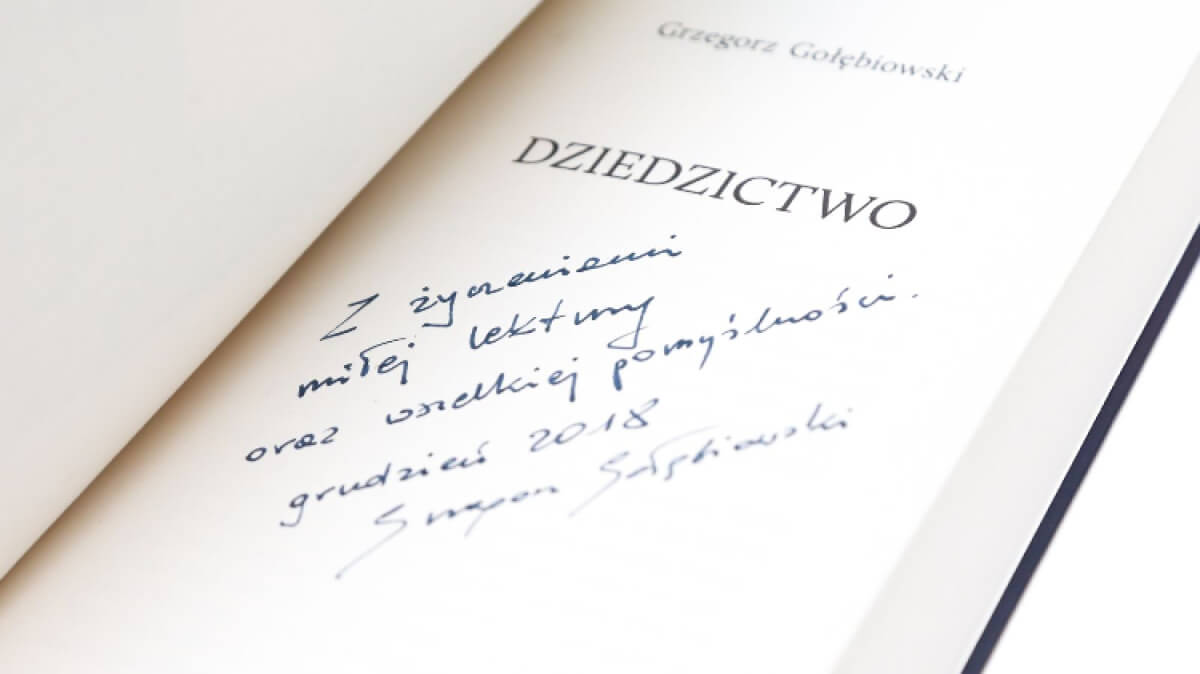 Grzegorz Gołębiowski
DZIEDZICTWO
Z życzeniami
miłej lektury
oraz wszelkiej pomyślności.
grudzień 2018
Grzegorz Gołębiowski